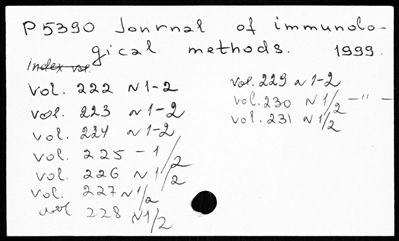 P5390 Journal of immunolo-
gical methods. 1999.
Index vol.
vol. 222 N1-2
vol. 223 N1-2
vol. 224 N1-2
vol. 225 - 1
vol. 226 N1/2
vol. 227 N1/2
vol 228 N1/2
vol. 229 N1-2
vol. 230 N1/2 -"-
vol. 231 N1/2